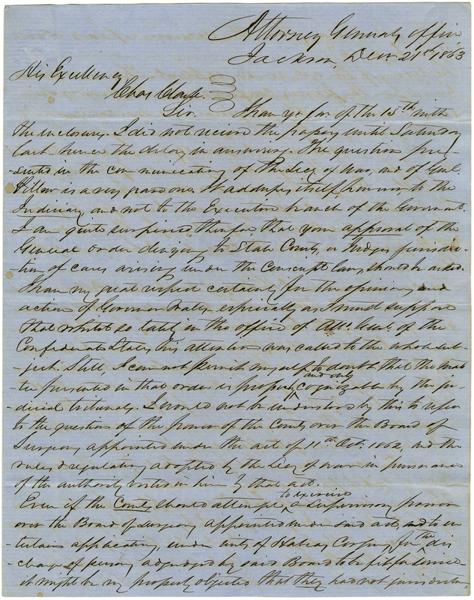 Attorney Generals office
Jackson, Decr 21st 1863
His Excellency
Chas Clark
Sir. I have yr fav of the 15th with
the inclosure. I did not receive the papers until Saturday
last hence the delay in answering. The question pre-
-sented in the communication of the Secy of War, and of Genl
Pillow is a very grave one. It addresses itself, however, to the
Judiciary and not to the Executive branch of the Government.
I am quite surprised, therefore that your approval of the
General order denying to State Courts, or Judges jurisdic-
-tion of cases arising under the conscript law, should be asked.
I have very great respect certainly for the opinion and
action of Governor Watts, especially as I must suppose
that whilst so lately in the office of Atto Genl of the
Confederate States, his attention was called to the whole sub-
-ject. Still, I can not permit myself to doubt that the mat-
-ter presented in that order is properly and only cognizable by the ju-
-dicial tribunals. I would not be understood by this to refer
to the question of the power of the Courts over the Board of
Surgeons appointed under the act of 11th Oct. 1862, and the
rules & regulations adopted by the Secy of War in pursuance
of the authority vested in him by that act.
Even if the Courts should attempt to exercise a supervisory power
over the Board of Surgeons appointed under said act, and to en-
-tertain applications, under writs of Habeas Corpus, for the dis-
-charge of persons adjudged by said Board to be fit for service
it might be very properly objected that they had not jurisdiction